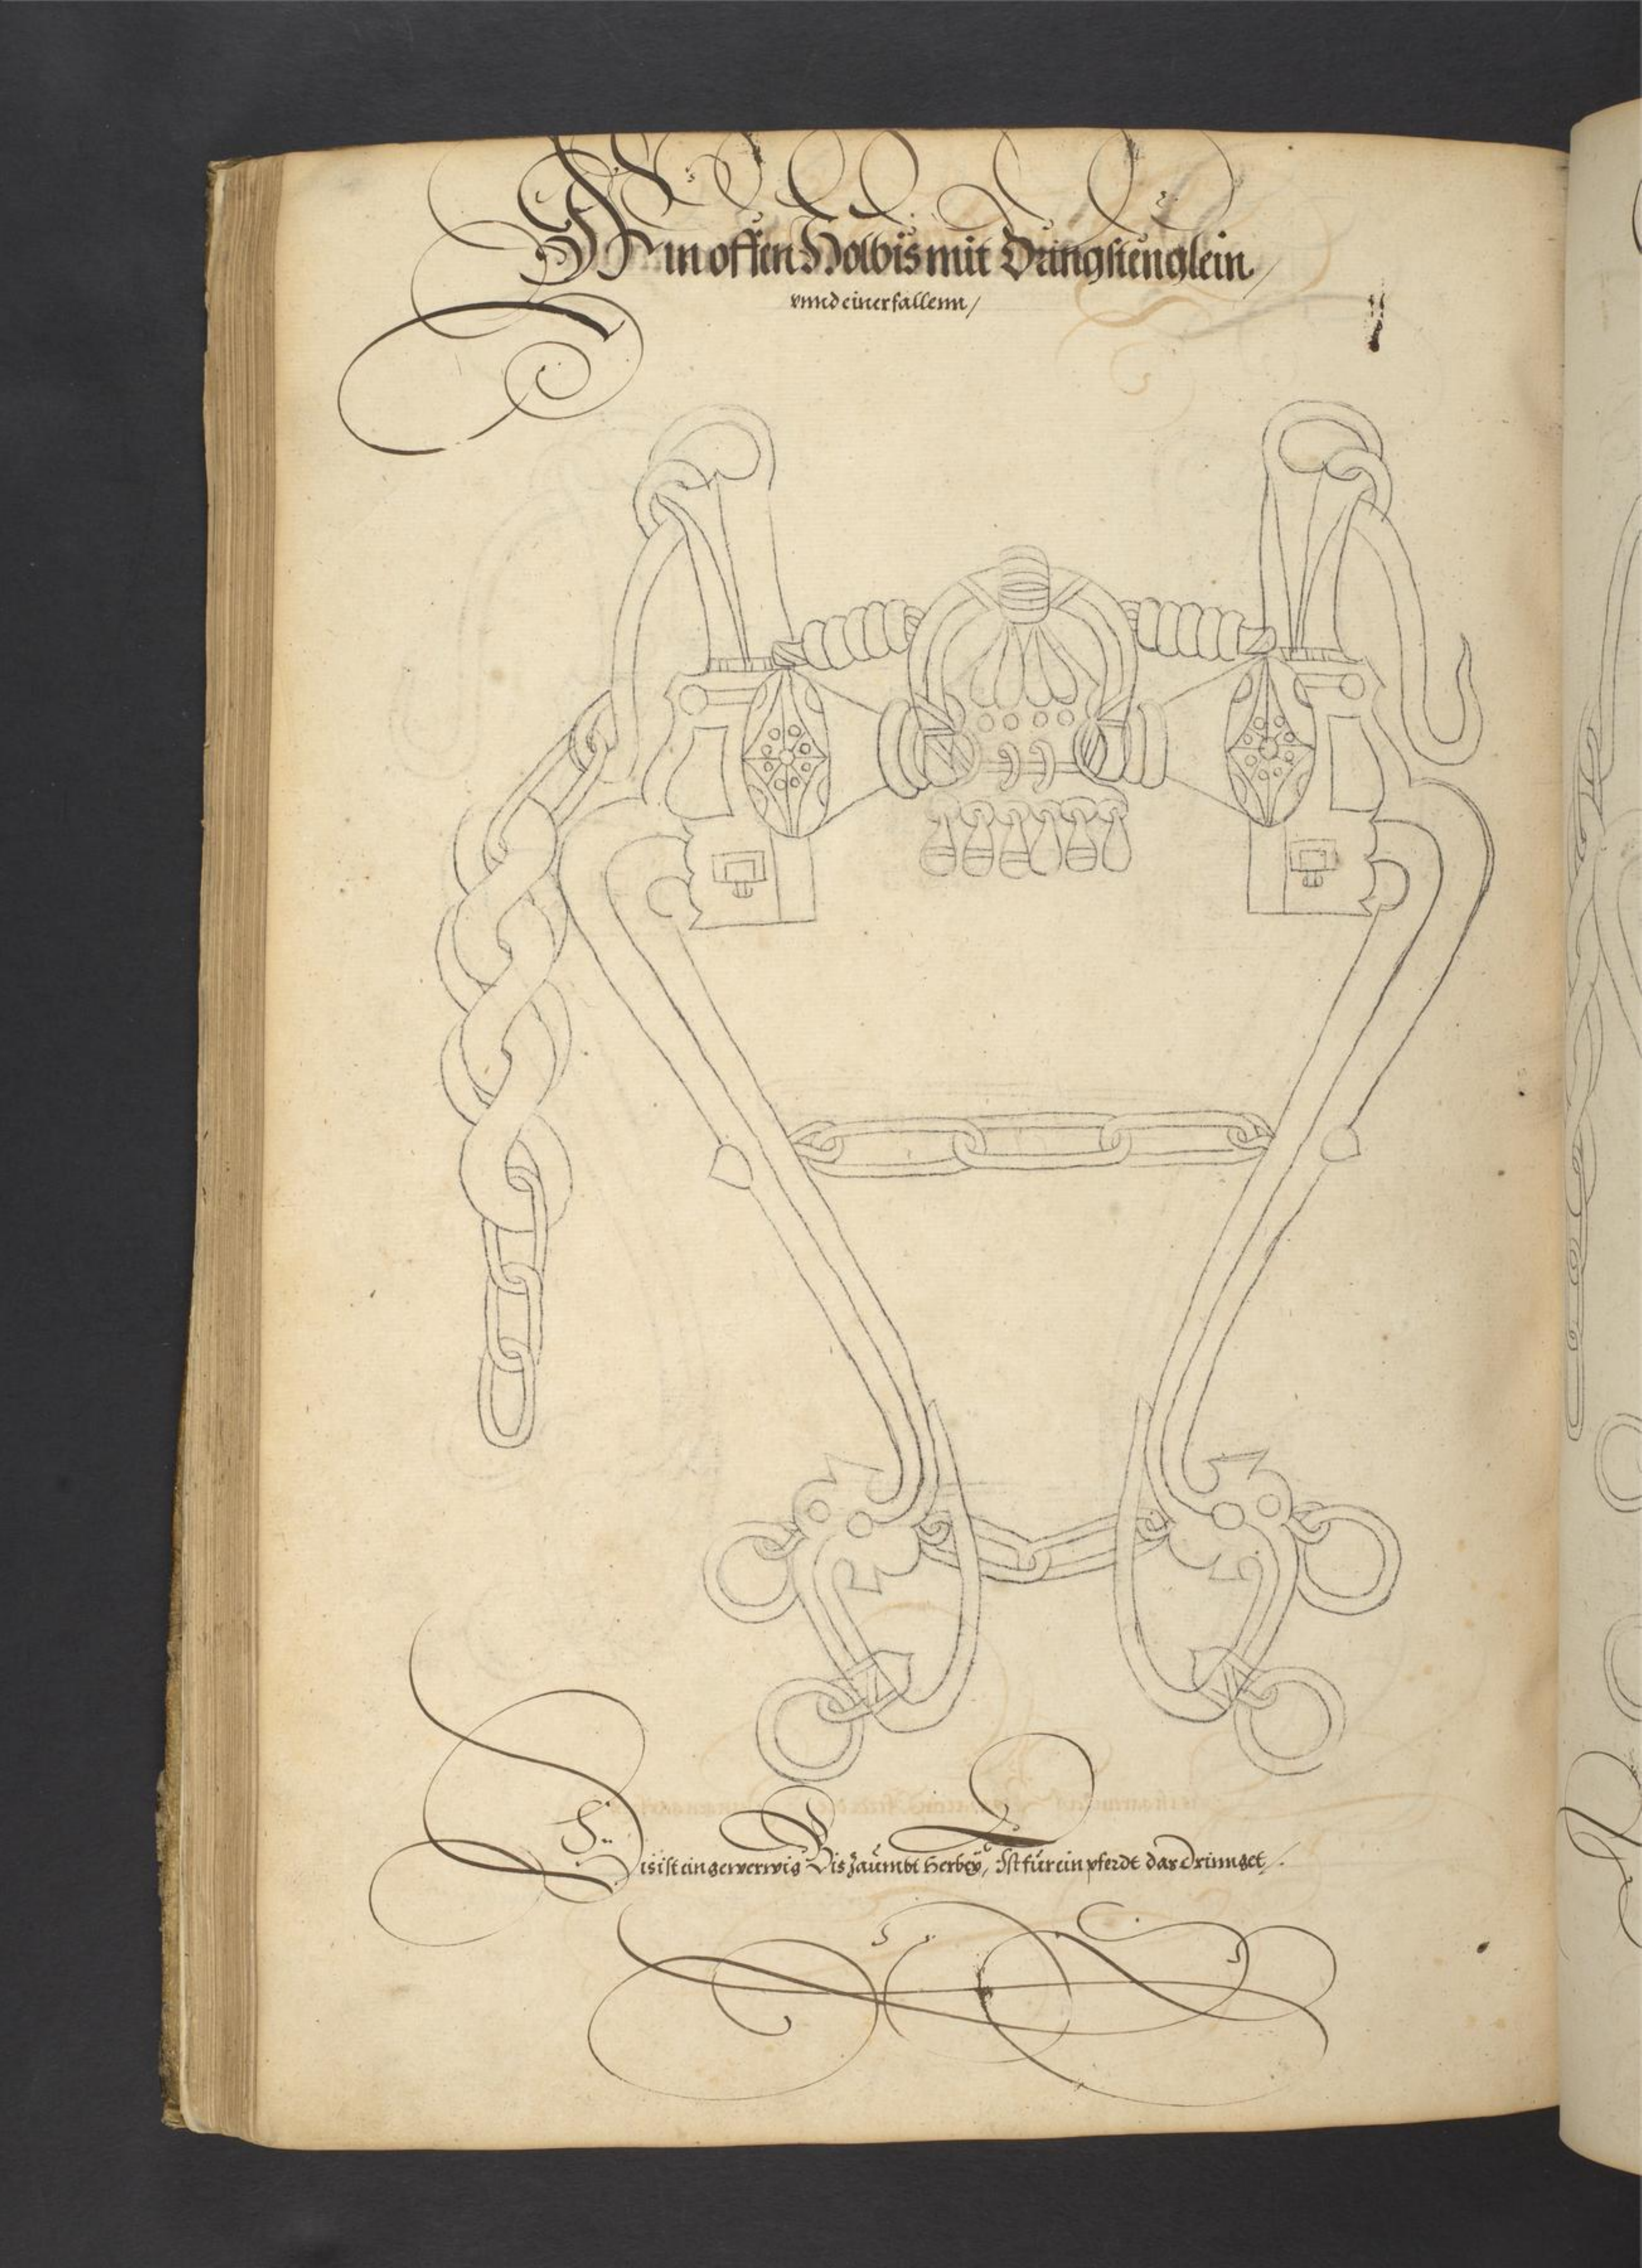 Ein offen Holbis mit Dringstenglein/
vnnd einer fallenn/
Dis ist ein gewerwig Bis Zäumbt herbey, Ist für ein pferdt das dringet/.